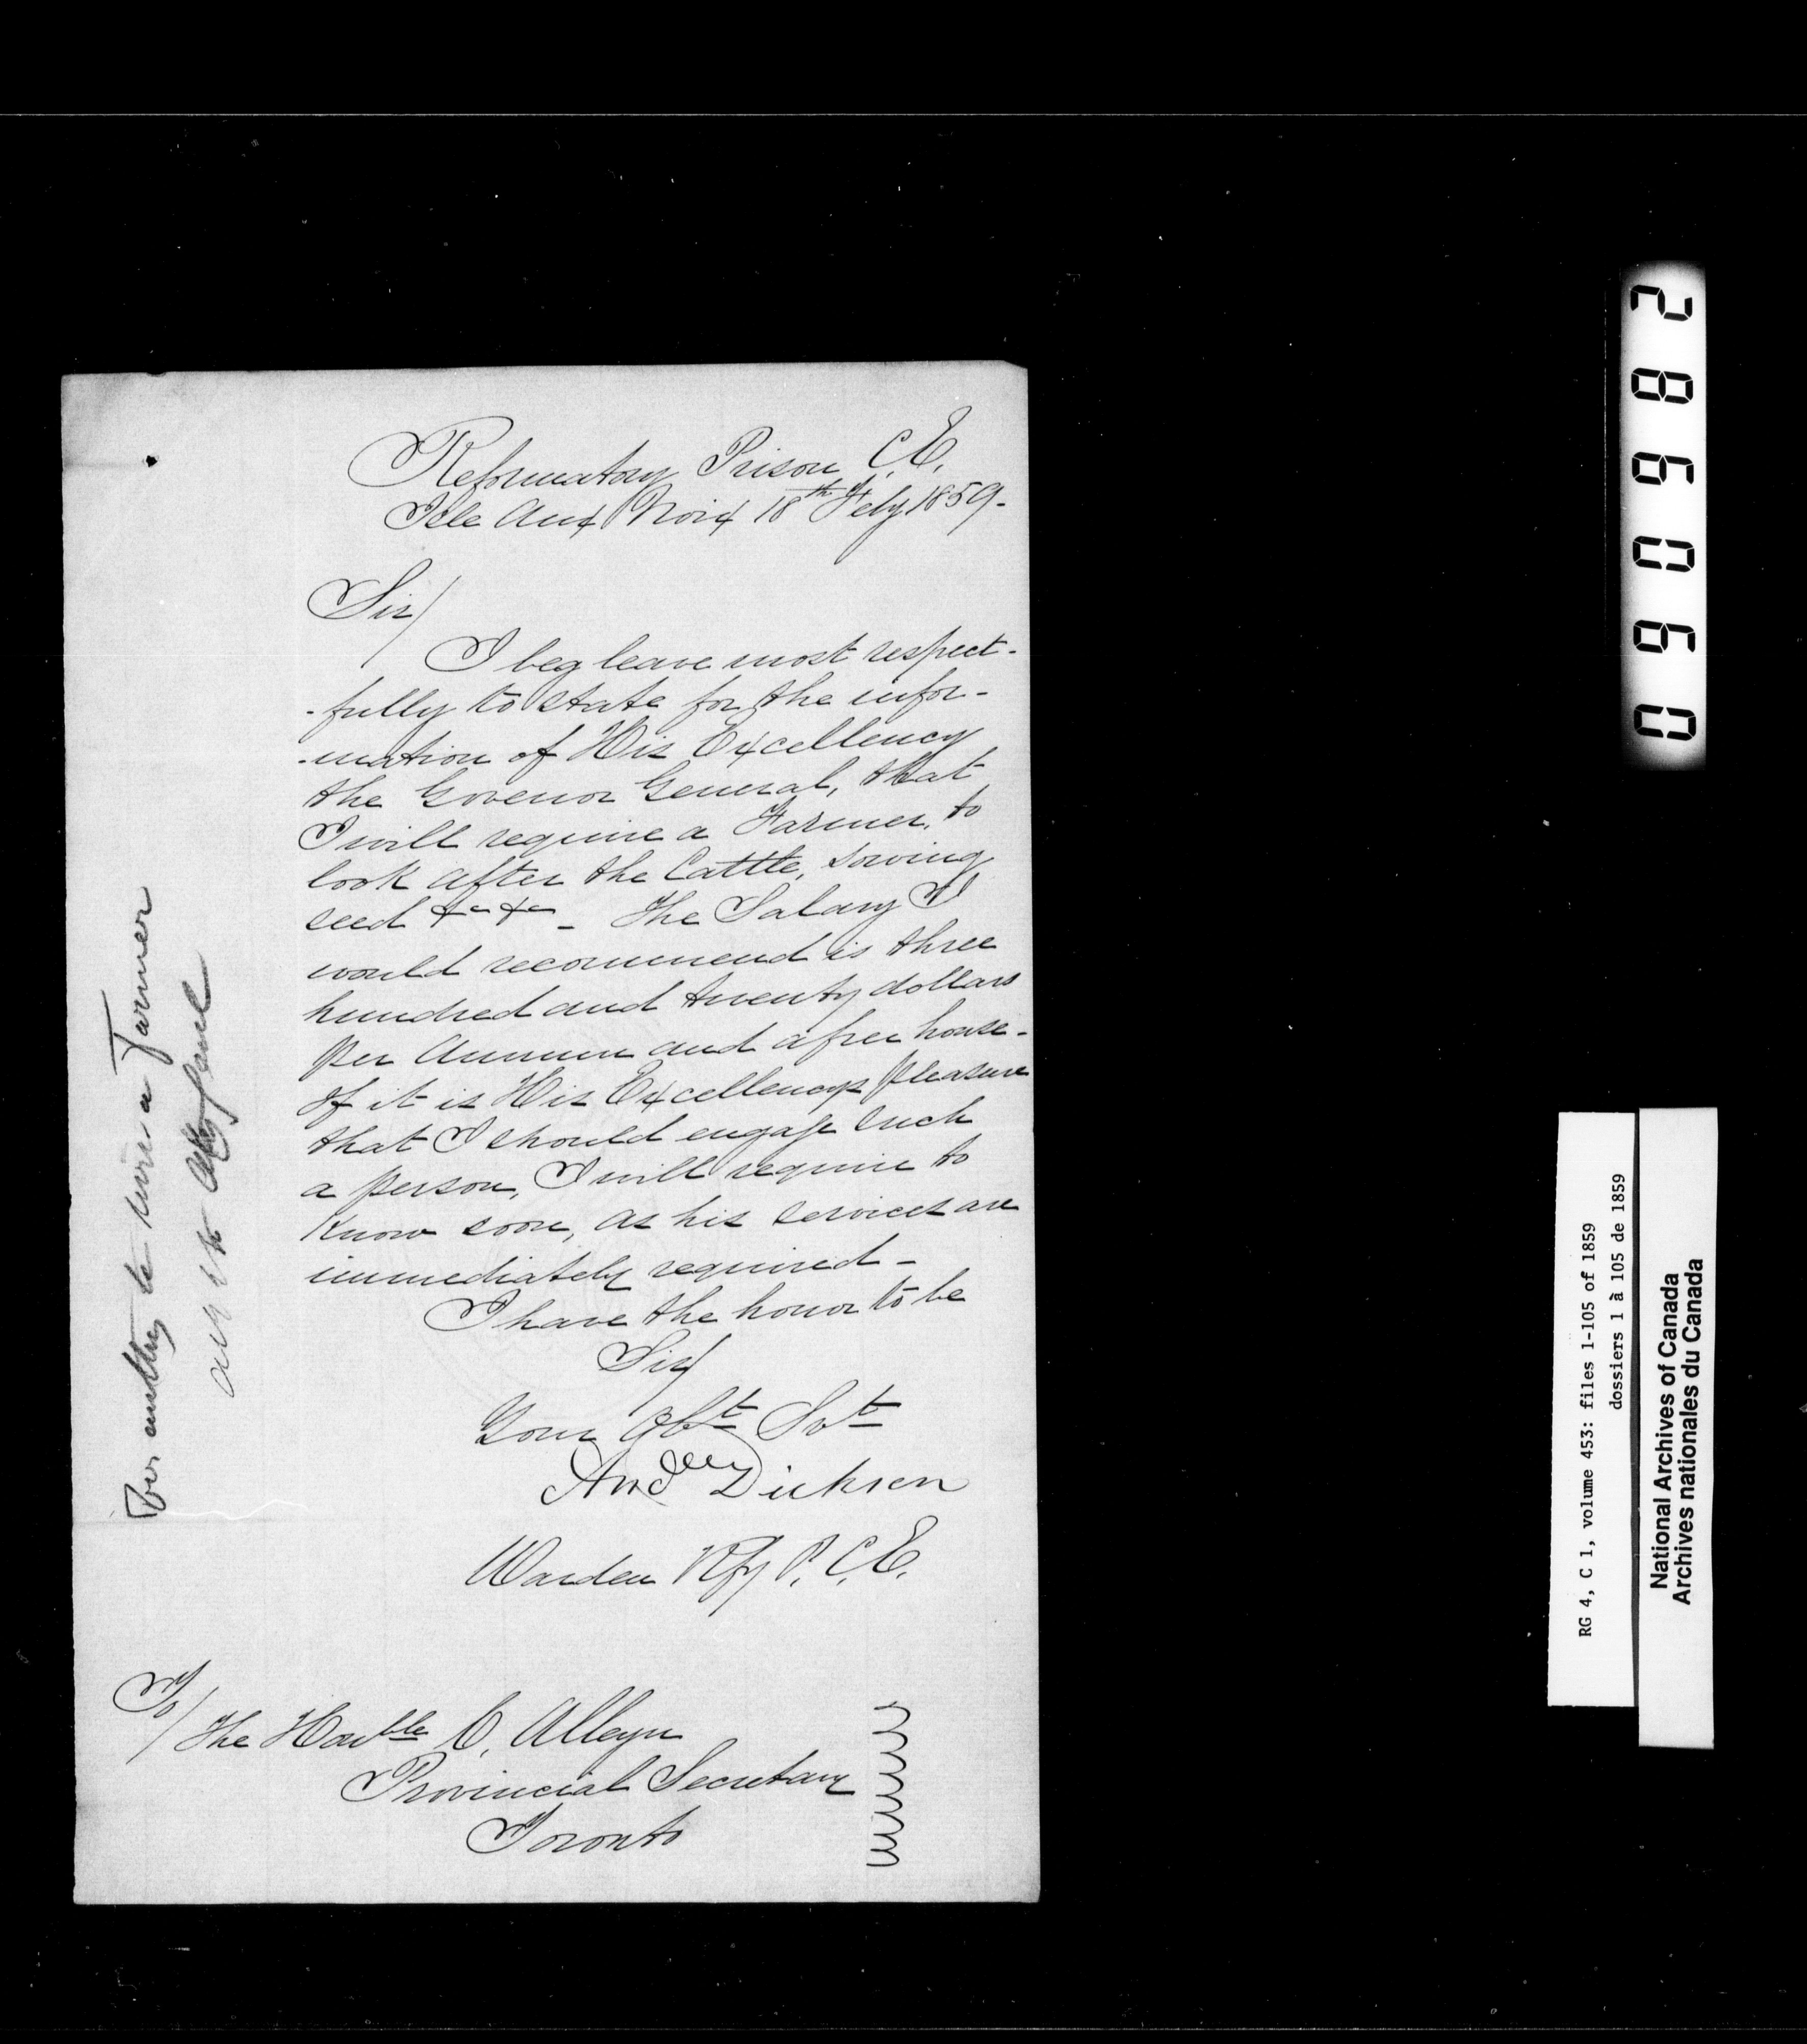 Reformatory Prison C.E.
Isle Aux Noix 18th Feby 1859-
Sir/
I beg leave most respect-
-fully to state for the infor-
-mation of His Excellency
the Govenor General, that
I will require a Farmer, to
look after the Cattle, sowing
seed &c &c - The Salary I
would recommend is three
hundred and twenty dollars
per Annum and a free house-
If it is His Excellencys pleasure
that I should engage such
a person, I will require to
know soon, as his services are
immediately required-
I have the honor to be
Sir/
Your Obt Svt
Andw Dickson
Warden Rfy P. C.E.
To/
The Honble C. Alleyn
Provincial Secretary
Toronto
For authy to hire a Farmer
096082
RG 4, C 1, volume 453: files 1-105 of 1859
dossiers 1 à 105 de 1859
National Archives of Canada
Archives nationales du Canada